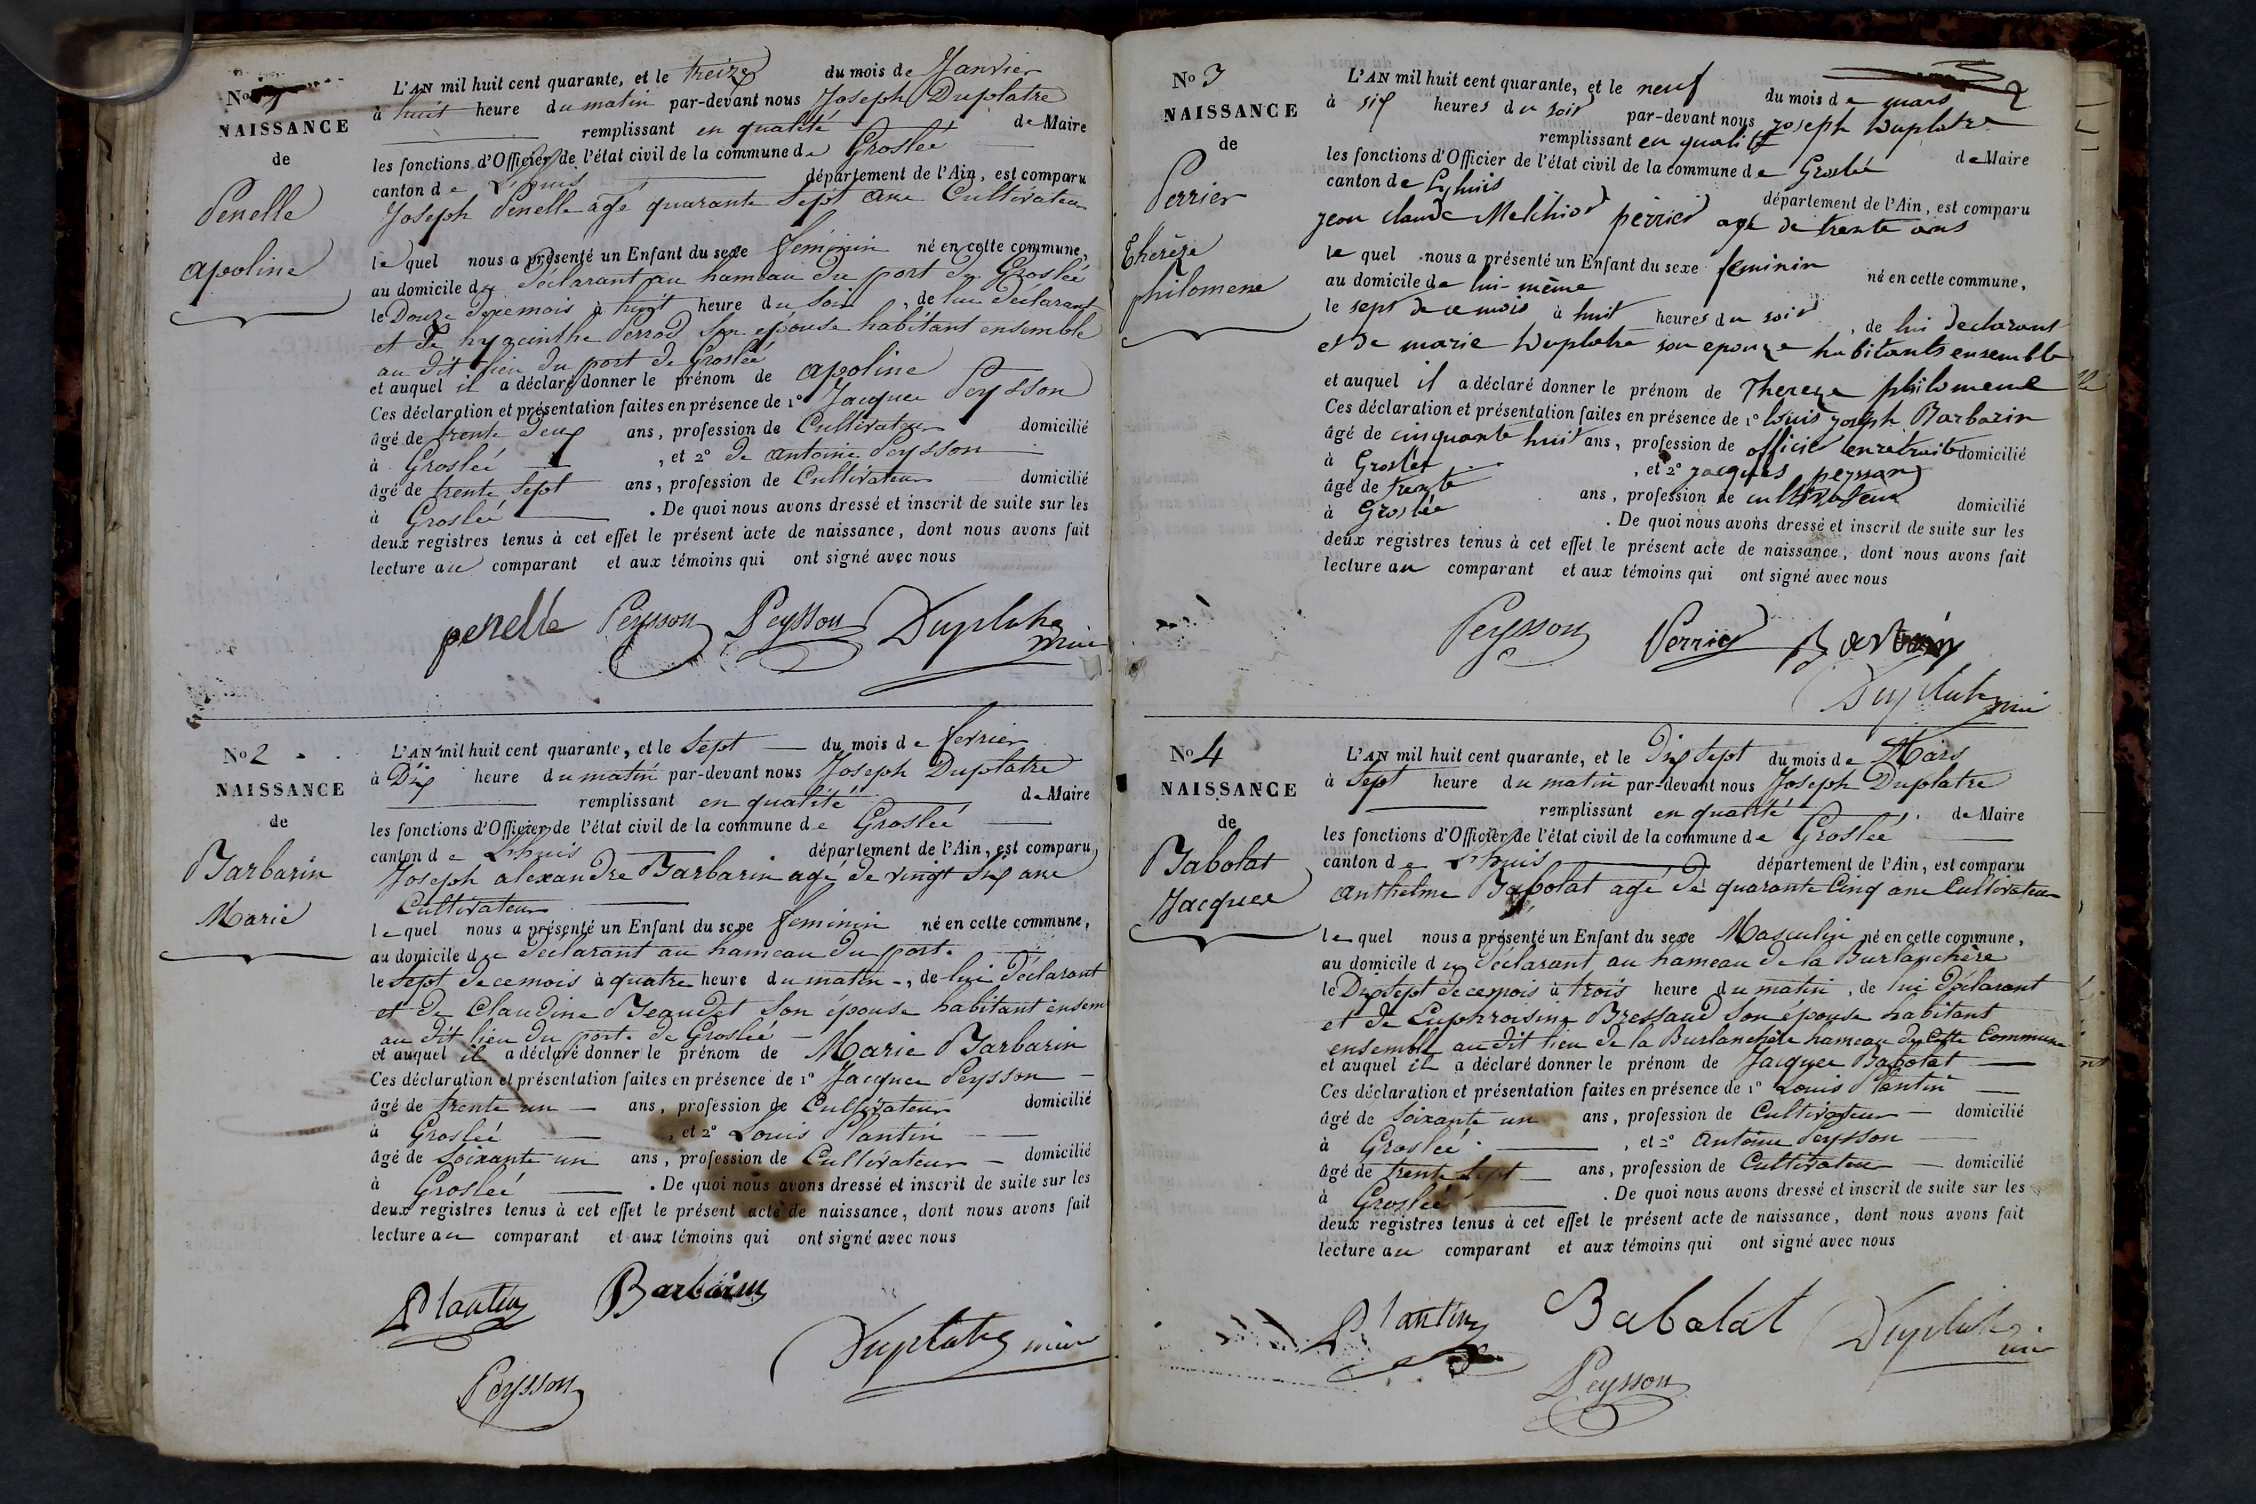 No
NAISSANCE
de
Penelle
apoline
L'AN mil huit cent quarante, et le treize du mois de Janvier
à huit heure du matin par-devant nous Joseph Duplatre
remplissant en qualité de Maire
les fonctions d'Officier de l'état civil de la commune de Groslée
canton de L'huis département de l'Ain, est comparu
Joseph Penelle âgé quarante sept ans Cultivateur
le quel nous a présenté un Enfant du sexe feminin né en cette commune,
au domicile du déclarant au hameau du port de Groslée
le Douze de ce mois à huit heure du Soir, de lui déclarant
et de hyacinthe Perrod son épouse habitant ensemble
au dit lieu du port de Groslée
et auquel il a déclaré donner le prénom de apoline
Ces déclaration et présentation faites en présence de 1° Jacques Peysson
âgé de trente deux ans, profession de Cultivateur domicilié
à Groslée, et 2° de antoine Peysson
âgé de trente sept ans, profession de Cultivateur domicilié
à Groslée. De quoi nous avons dressé et inscrit de suite sur les
deux registres tenus à cet effet le présent acte de naissance, dont nous avons fait
lecture au comparant et aux témoins qui ont signé avec nous
penelle Peysson Peysson Duplatre
maire
No 2
NAISSANCE
de
Barbarin
Marie
L'AN mil huit cent quarante, et le Sept du mois de fevrier
à Dix heure du matin par-devant nous Joseph Duplatre
remplissant en qualité de Maire
les fonctions d'Officier de l'état civil de la commune de Groslée
canton de L'huis département de l'Ain, est comparu
Joseph alexandre Barbarin age de vingt six ans
Cultivateur
le quel nous a présenté un Enfant du sexe feminin né en cette commune,
au domicile du déclarant au hameau du port.
le Sept de ce mois à quatre heure du matin, de lui déclarant
et de Claudine Beaudet Son épouse habitant ensem
au dit lieu du port de Groslée
et auquel il a déclaré donner le prénom de Marie Barbarin
Ces déclaration et présentation faites en présence de 1° Jacques Peysson
âgé de trente un ans, profession de Cultivateur domicilié
à Groslée, et 2° Louis Plantin
âgé de Soixante un ans, profession de Cultivateur domicilié
à Groslée. De quoi nous avons dressé et inscrit de suite sur les
deux registres tenus à cet effet le présent acte de naissance, dont nous avons fait
lecture au comparant et aux témoins qui ont signé avec nous
Plantin Barbarin
Duplatre maire
Peysson
2
No 3
NAISSANCE
de
Perrier
Thérèze
philomene
L'AN mil huit cent quarante, et le neuf du mois de mars
à six heures du soir par-devant nous joseph Duplatre
remplissant en qualité de Maire
les fonctions d'Officier de l'état civil de la commune de Groslée
canton de Lhuis département de l'Ain, est comparu
jean claude Melchior perrier agé de trente ans
le quel nous a présenté un Enfant du sexe feminin né en cette commune,
au domicile de lui-même
le sept de ce mois à huit heures du soir, de lui declarant
et de marie Duplatre son epouze habitants ensemble
et auquel il a déclaré donner le prénom de Thereze philomene
Ces déclaration et présentation faites en présence de 1° louis joseph Barbarin
âgé de cinquante huit ans, profession de officier en retraite domicilié
à Groslée, et 2° jacques peysson
âgé de trente ans, profession de cultivateur domicilié
à Groslée. De quoi nous avons dressé et inscrit de suite sur les
deux registres tenus à cet effet le présent acte de naissance, dont nous avons fait
lecture au comparant et aux témoins qui ont signé avec nous
Peysson Perrier Barbarin
Duplatre maire
No 4
NAISSANCE
de
Babolat
Jacques
L'AN mil huit cent quarante, et le Dix Sept du mois de Mars
à Sept heure du matin par-devant nous Joseph Duplatre
remplissant en qualité de Maire
les fonctions d'Officier de l'état civil de la commune de Groslée
canton de L'huis département de l'Ain, est comparu
anthelme Babolat agé de quarante Cinq ans Cultivateur
le quel nous a présenté un Enfant du sexe Masculin né en cette commune,
au domicile du déclarant au hameau de la Burlanchère
le Dix Sept de ce mois à trois heure du matin, de lui déclarant
et de Euphroisine Bressaud Son épouse habitant
ensemble au dit lieu de la Burlanchère hameau de Cette Commune
et auquel il a déclaré donner le prénom de Jacques Babolat
Ces déclaration et présentation faites en présence de 1° Louis Plantin
âgé de Soixante un ans, profession de Cultivateur domicilié
à Groslée, et 2° Antoine Peysson
âgé de trente Sept ans, profession de Cultivateur domicilié
à Groslée. De quoi nous avons dressé et inscrit de suite sur les
deux registres tenus à cet effet le présent acte de naissance, dont nous avons fait
lecture au comparant et aux témoins qui ont signé avec nous
Plantin Babolat Duplatre
maire
Peysson